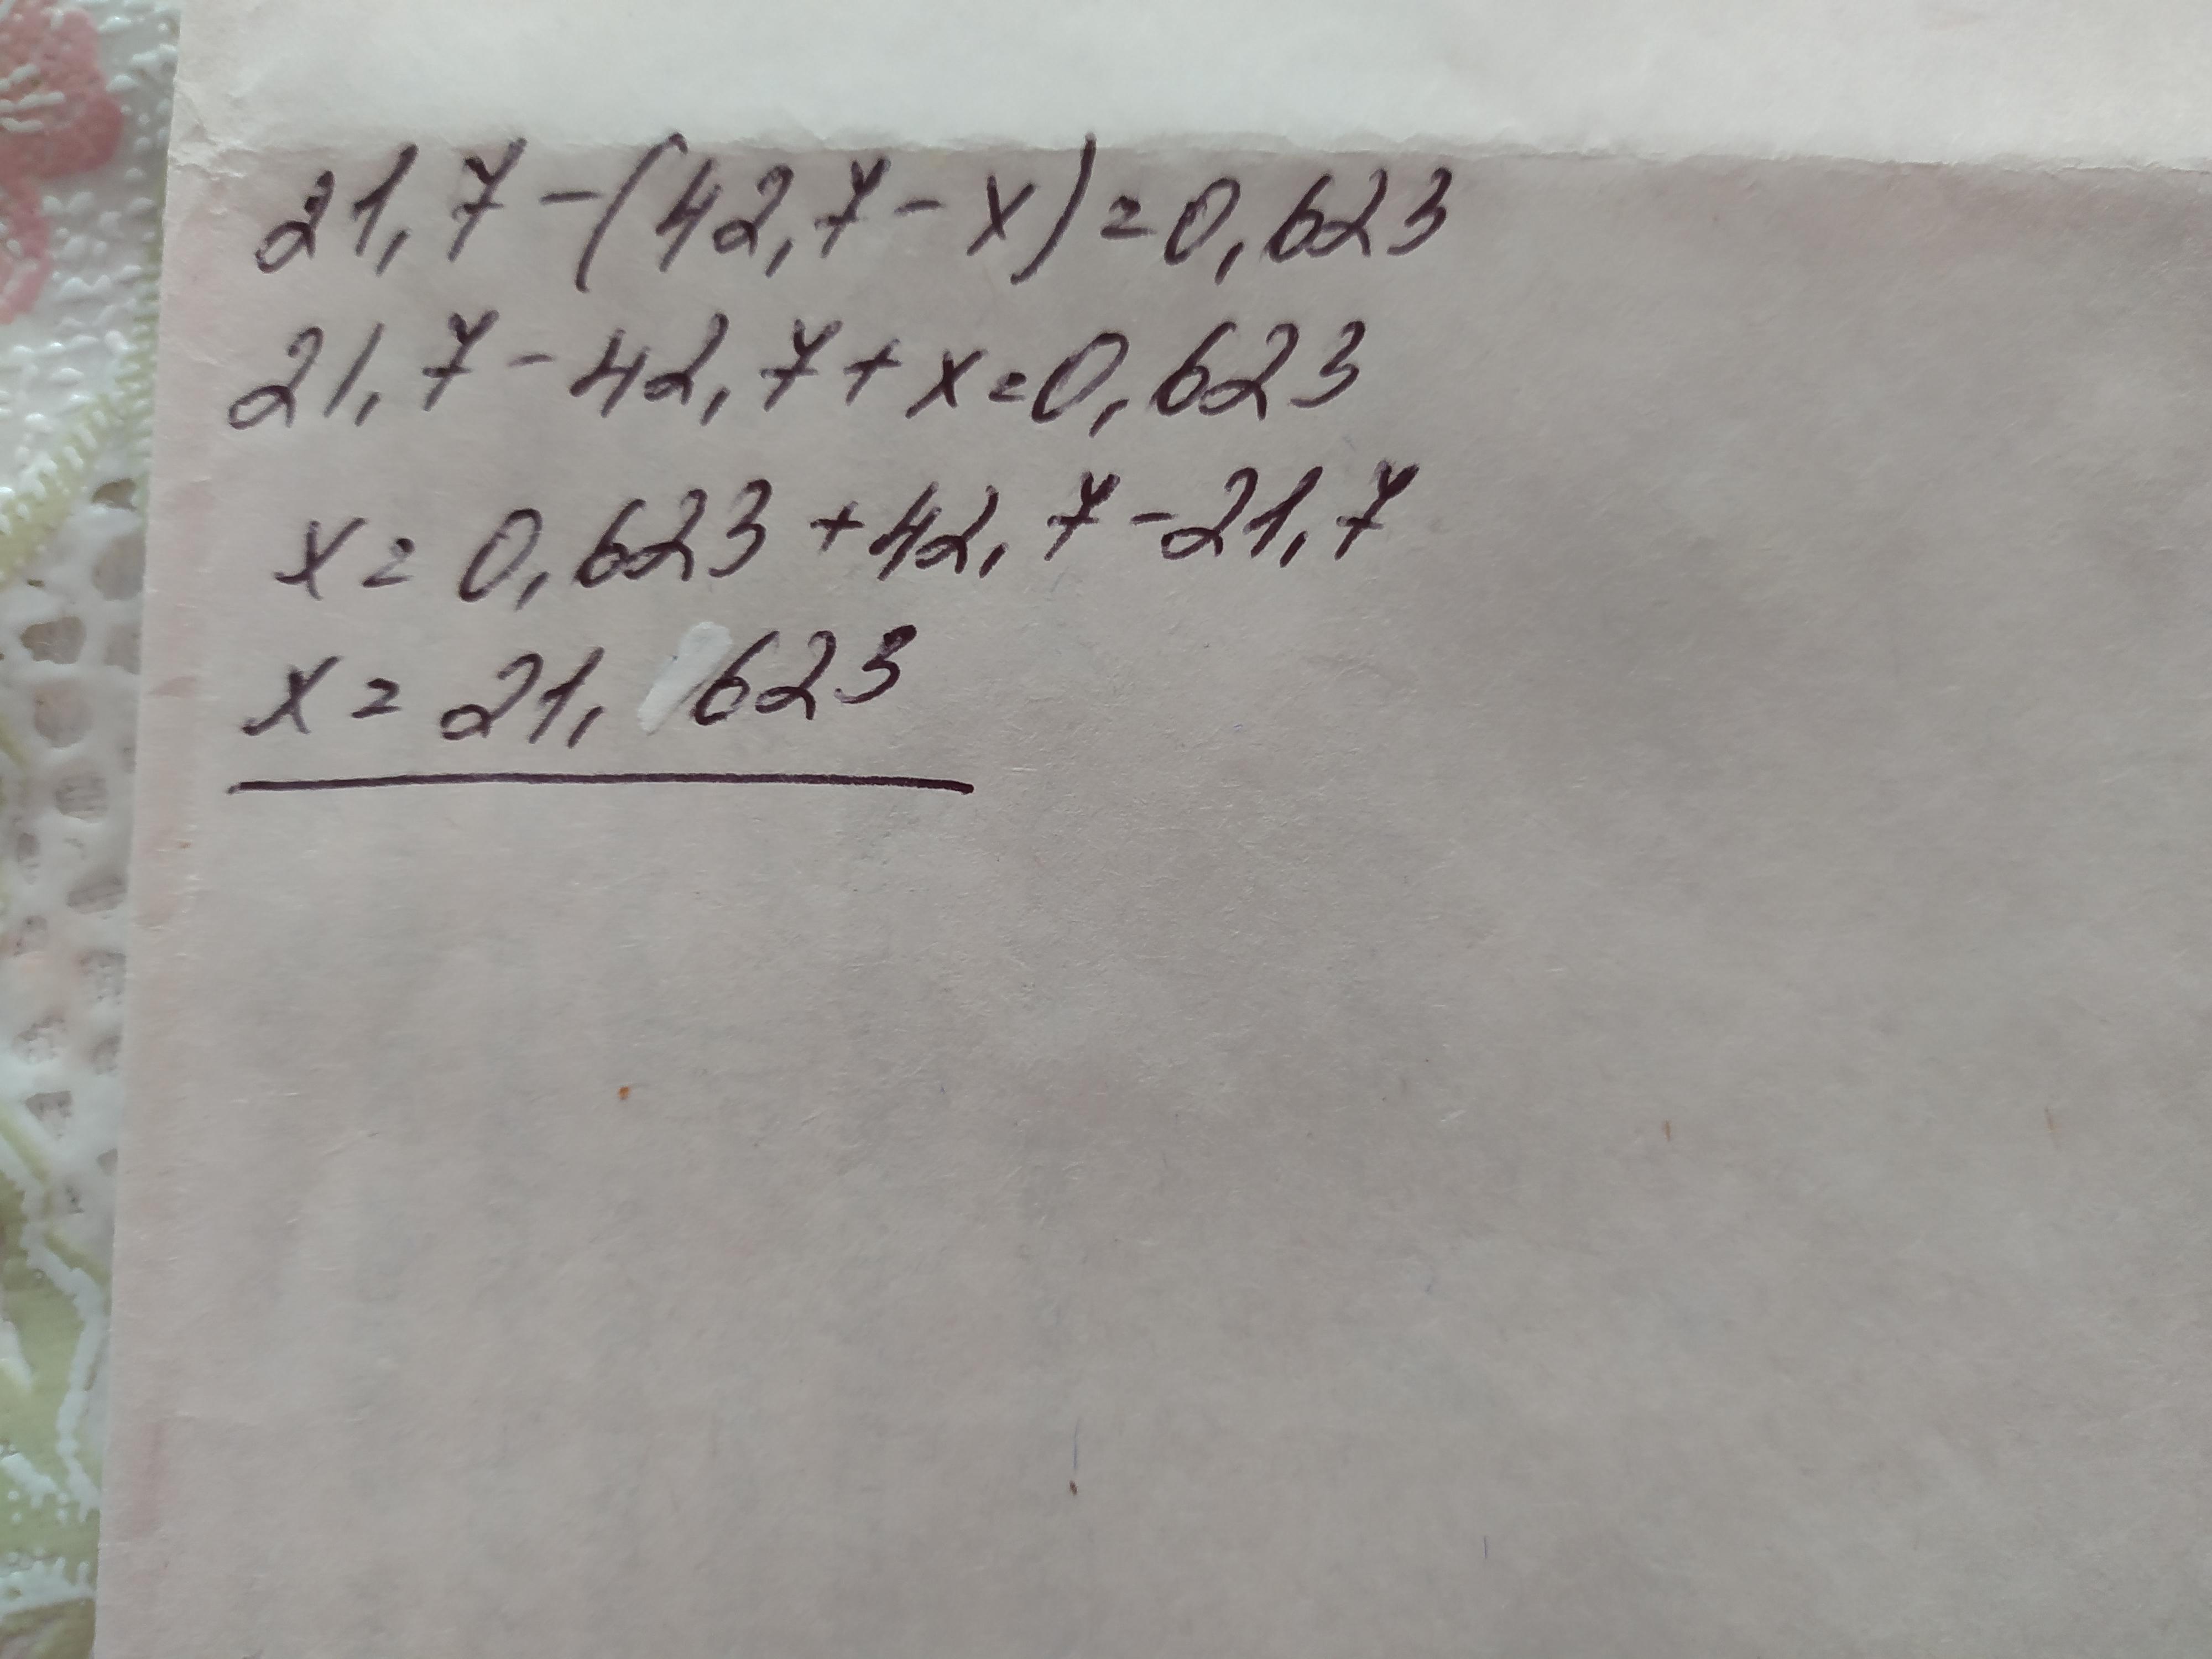 21,7-(42,7-x)=0,623
21,7-42,7+x=0,623
x=0,623+42,7-21,7
x=21,623